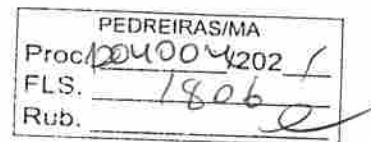 PEDREIRAS/MA
Proc. 1204004/2021
FLS. 1806
Rub.